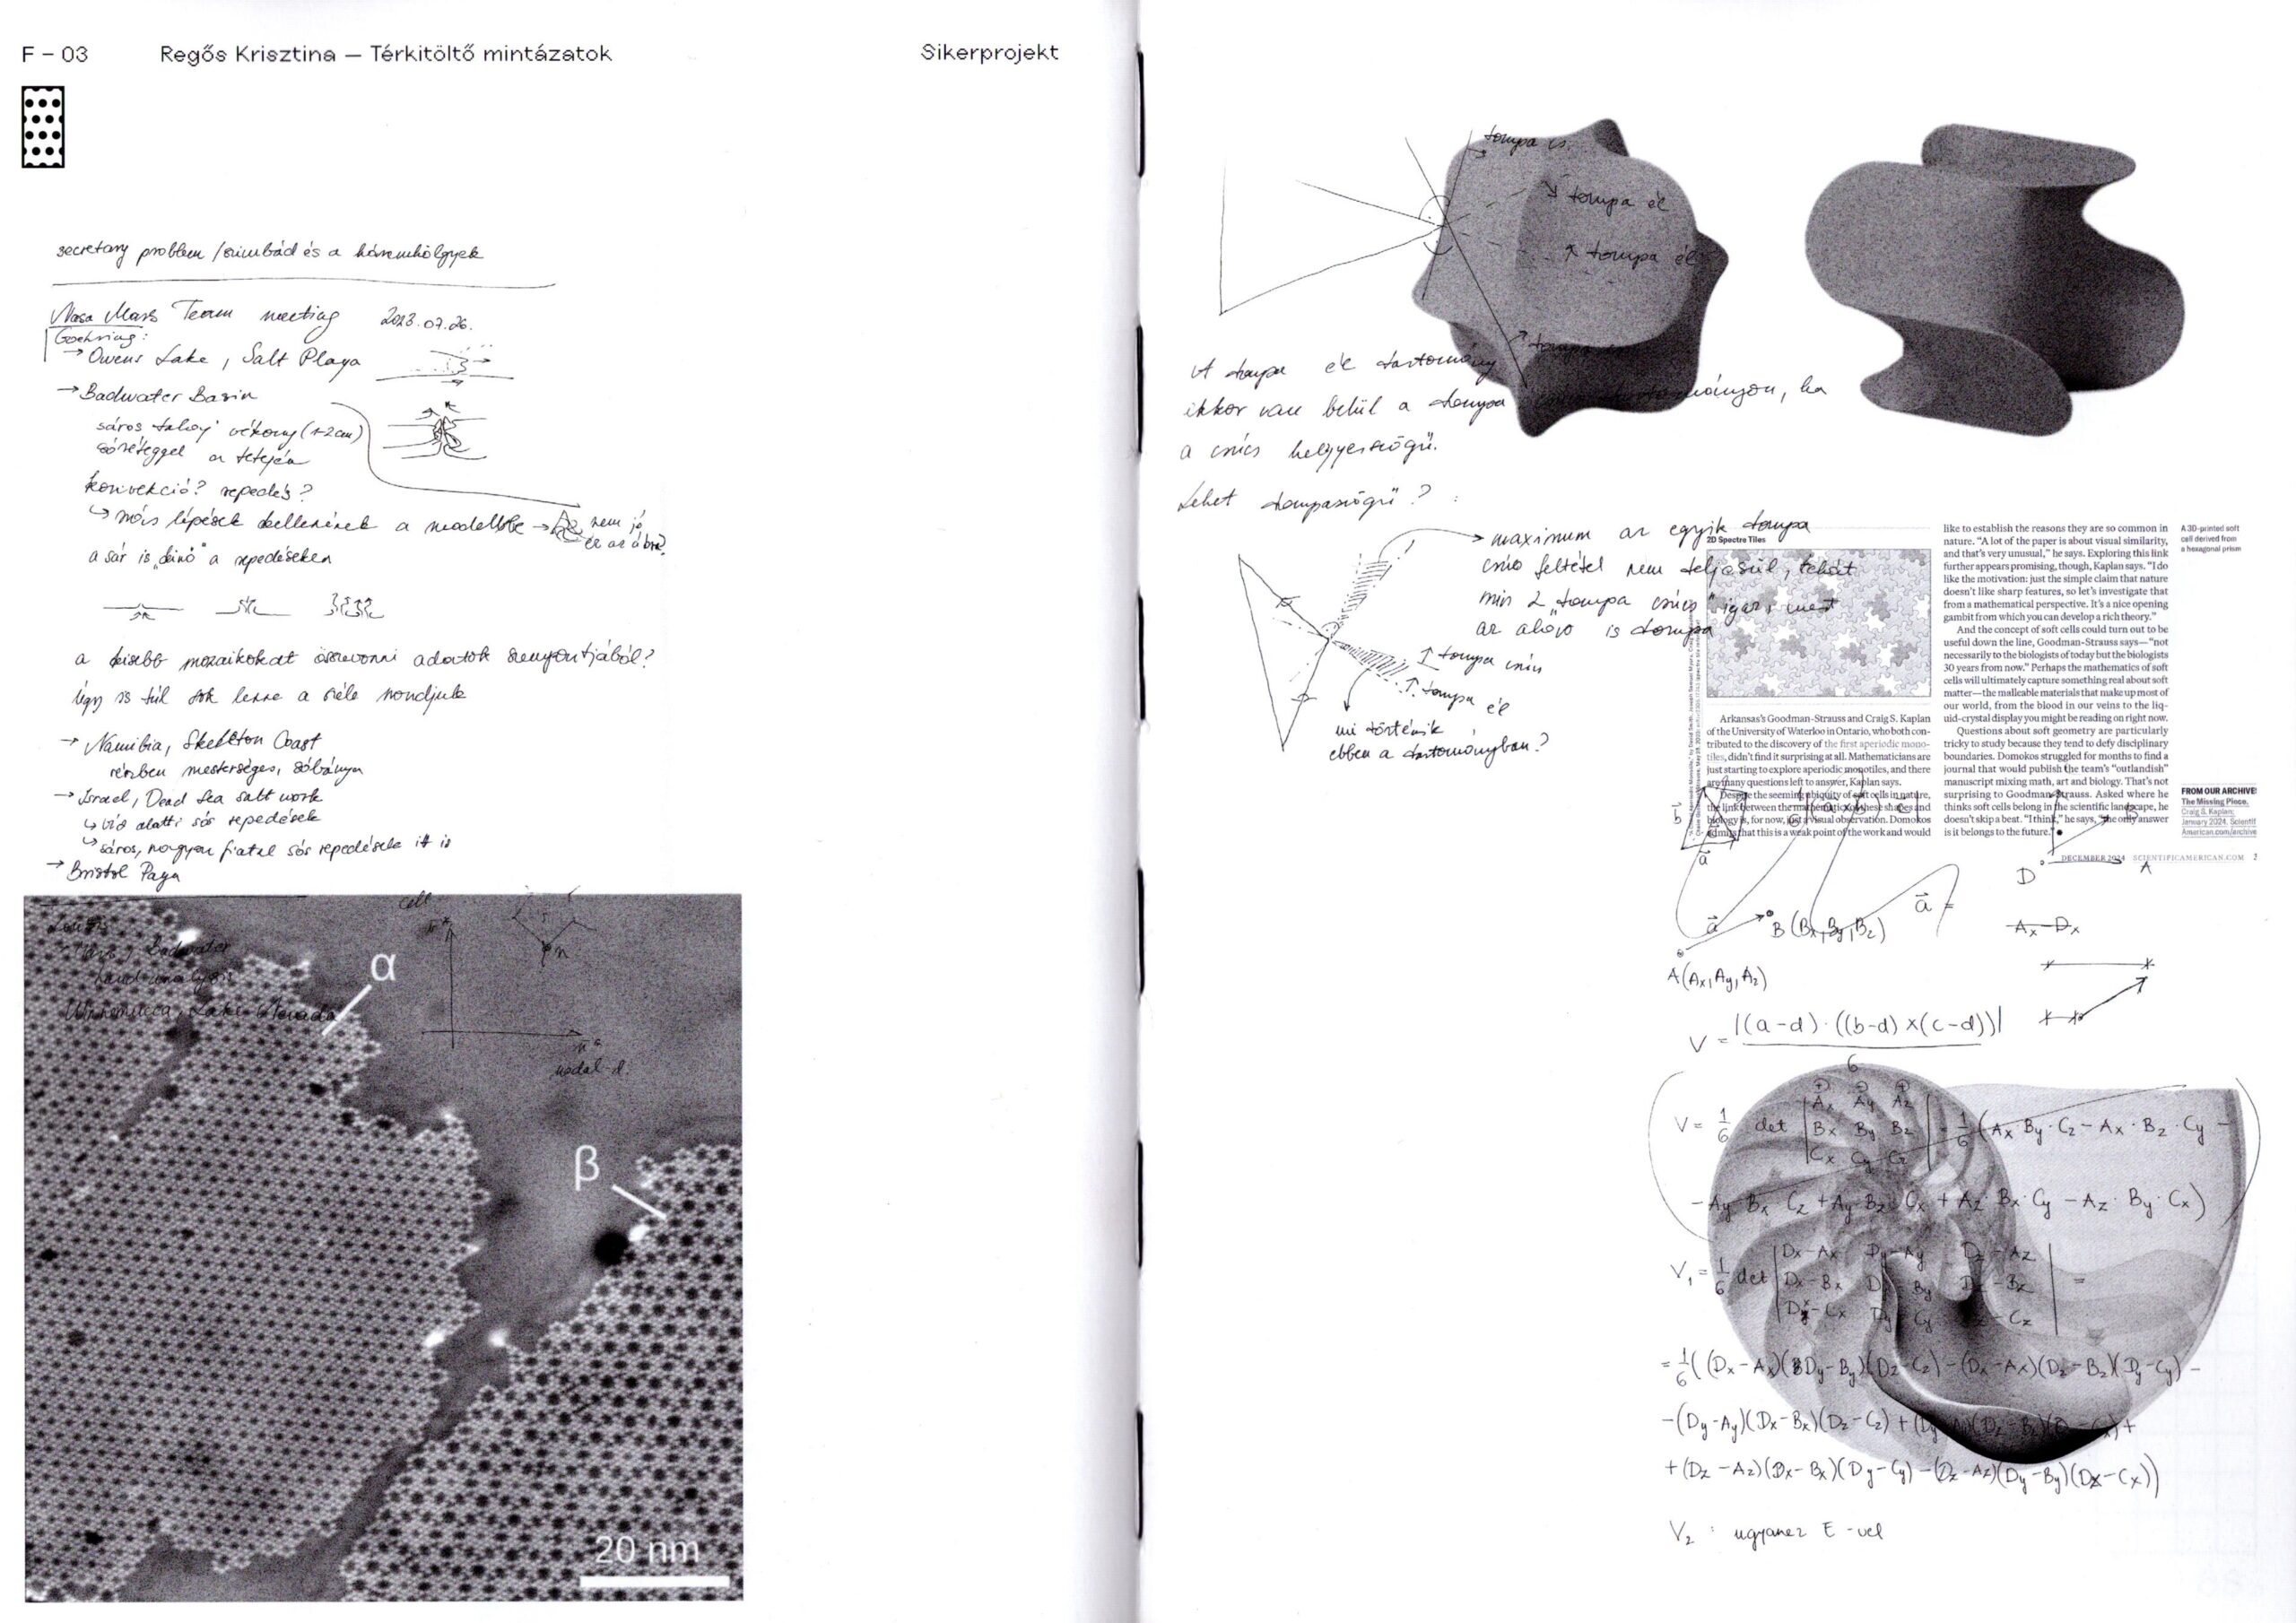 F – 03
Regős Krisztina — Térkitöltő mintázatok
Sikerprojekt
secretary problem / szimbád és a háremhölgyek
Nasa Mars Team meeting 2023.07.26.
Goehring:
→ Owens Lake, Salt Playa
→ Badwater Basin
sáros talaj vékony (1-2cm)
sóréteggel a tetején
konvekció? repedés?
↳ más lépések kellenének a modellbe → nem jó
ez az ábra?
a sár is „kinő" a repedéseken
a kisebb mozaikokat összevonni adatok szempontjából?
úgy is túl sok lenne a séle mondjuk
→ Namibia, Skeleton Coast
részben mesterséges, sóbánya
→ Israel, Dead Sea salt work
↳ víz alatti sós repedések
↳ sáros, nagyon fiatal sós repedések itt is
→ Bristol Paya
cell
Badwater
Winnemucca, Lake Nevada
n
nodal d.
α
β
20 nm
tompa cs.
tompa él
tompa él
A tompa él tartomány
ekkor van belül a tompa
tartományon, ha
a csúcs hegyesszögű.
Lehet tompaszögű?
→ maximum az egyik tompa
csúcs feltétel nem teljesül, tehát
min 2 „tompa csúcs" igaz, mert
az alsó is tompa
↑ tompa csúcs
↑ tompa él
mi történik
ebben a tartományban?
2D Spectre Tiles
Arkansas's Goodman-Strauss and Craig S. Kaplan
of the University of Waterloo in Ontario, who both con-
tributed to the discovery of the first aperiodic mono-
tiles, didn't find it surprising at all. Mathematicians are
just starting to explore aperiodic monotiles, and there
are many questions left to answer, Kaplan says.
Despite the seeming ubiquity of soft cells in nature,
the link between the mathematics of these shapes and
biology is, for now, just a visual observation. Domokos
admits that this is a weak point of the work and would
like to establish the reasons they are so common in
nature. "A lot of the paper is about visual similarity,
and that's very unusual," he says. Exploring this link
further appears promising, though, Kaplan says. "I do
like the motivation: just the simple claim that nature
doesn't like sharp features, so let's investigate that
from a mathematical perspective. It's a nice opening
gambit from which you can develop a rich theory."
And the concept of soft cells could turn out to be
useful down the line, Goodman-Strauss says—"not
necessarily to the biologists of today but the biologists
30 years from now." Perhaps the mathematics of soft
cells will ultimately capture something real about soft
matter—the malleable materials that make up most of
our world, from the blood in our veins to the liq-
uid-crystal display you might be reading on right now.
Questions about soft geometry are particularly
tricky to study because they tend to defy disciplinary
boundaries. Domokos struggled for months to find a
journal that would publish the team's "outlandish"
manuscript mixing math, art and biology. That's not
surprising to Goodman-Strauss. Asked where he
thinks soft cells belong in the scientific landscape, he
doesn't skip a beat. "I think," he says, "the only answer
is it belongs to the future."
A 3D-printed soft
cell derived from
a hexagonal prism
FROM OUR ARCHIVES
The Missing Piece.
Craig S. Kaplan;
January 2024. Scientif
American.com/archive
DECEMBER 2024 SCIENTIFICAMERICAN.COM 2
b
a
D
A
B
a
B (Bx, By, Bz)
a =
Ax–Dx
A (Ax, Ay, Az)
V = |(a-d)·((b-d)×(c-d))| / 6
V = 1/6 det | Ax Ay Az
Bx By Bz
Cx Cy Cz | = 1/6 (Ax By·Cz – Ax·Bz·Cy –
– Ay Bx Cz + Ay Bz Cx + Az Bx·Cy – Az·By·Cx)
V₁ = 1/6 det | Dx–Ax Dy–Ay Dz–Az
Dx–Bx Dy–By Dz–Bz
Dx–Cx Dy–Cy Dz–Cz | =
= 1/6 ((Dx–Ax)(Dy–By)(Dz–Cz) – (Dx–Ax)(Dz–Bz)(Dy–Cy) –
–(Dy–Ay)(Dx–Bx)(Dz–Cz) + (Dy–Ay)(Dz–Bz)(Dx–Cx) +
+(Dz–Az)(Dx–Bx)(Dy–Cy) – (Dz–Az)(Dy–By)(Dx–Cx))
V₂ : ugyanez E-vel